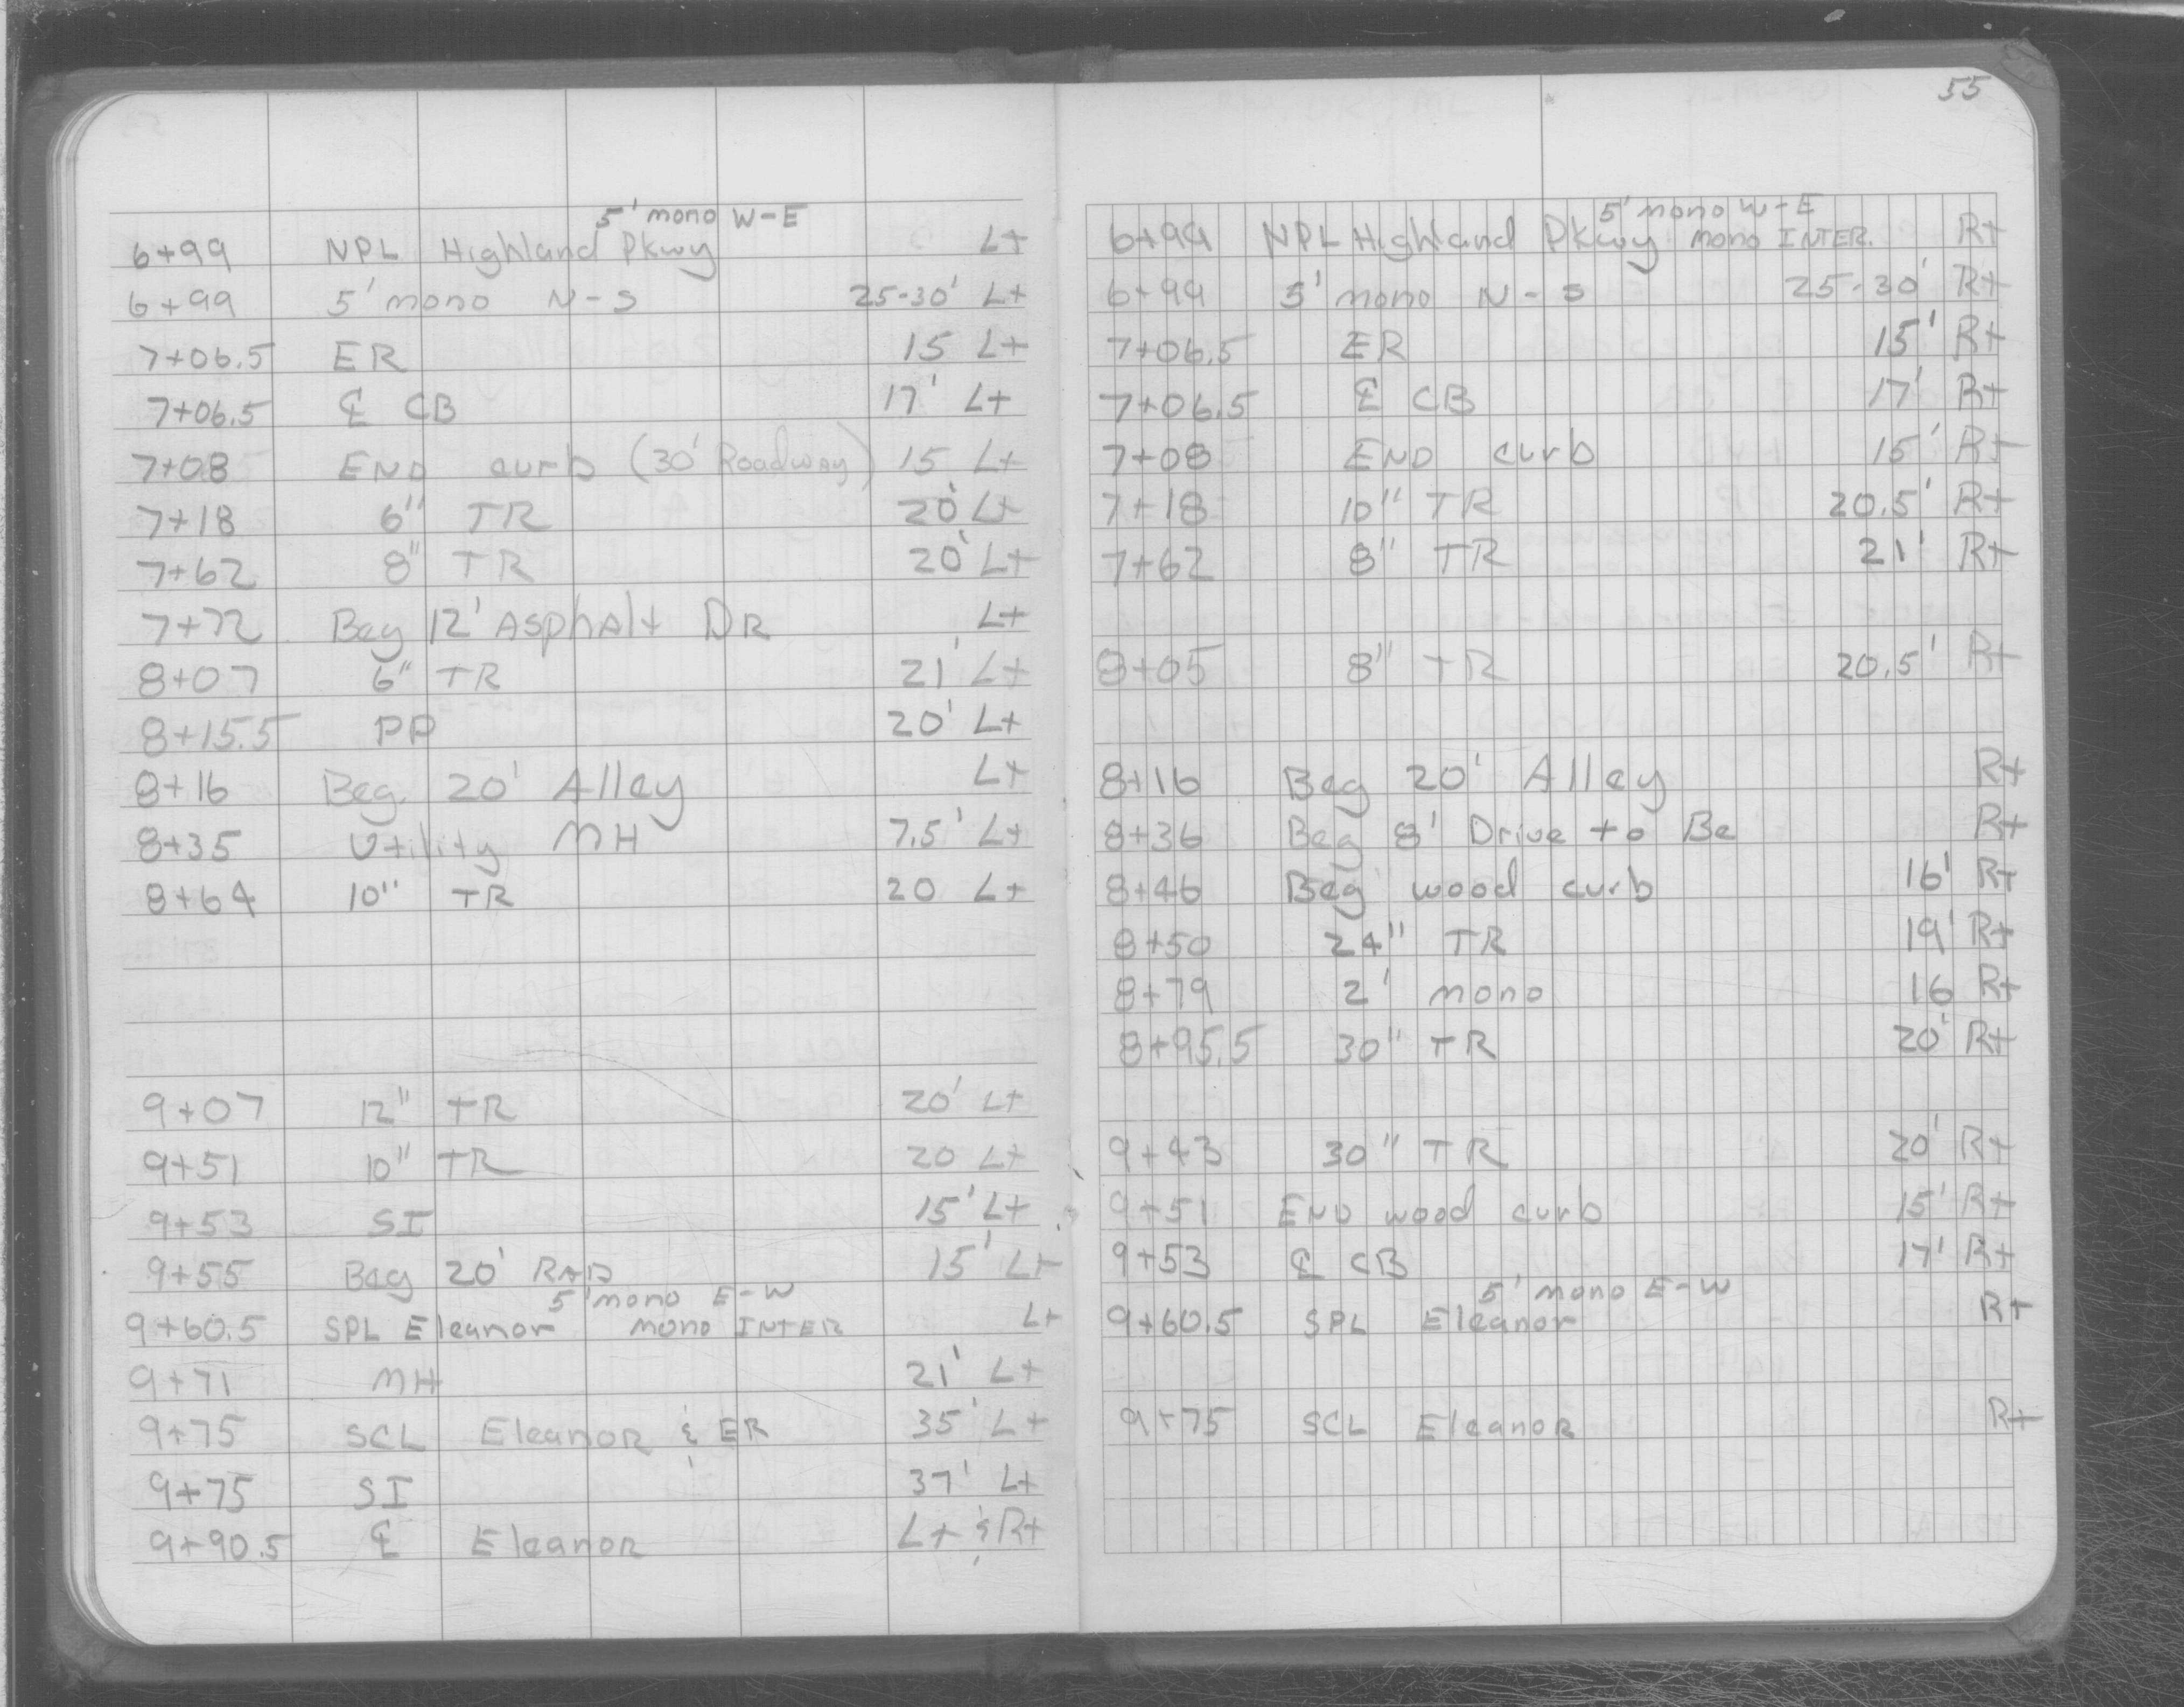 5' mono W-E
6+99 NPL Highland Pkwy Lt
6+99 5' mono N-S 25-30' Lt
7+06.5 ER 15 Lt
7+06.5 ℄ CB 17' Lt
7+08 END curb (30' Roadway) 15 Lt
7+18 6" TR 20' Lt
7+62 8" TR 20' Lt
7+72 Beg 12' Asphalt DR Lt
8+07 6" TR 21' Lt
8+15.5 PP 20' Lt
8+16 Beg. 20' Alley Lt
8+35 Utility MH 7.5' Lt
8+64 10" TR 20 Lt
9+07 12" TR 20' Lt
9+51 10" TR 20 Lt
9+53 SI 15' Lt
9+55 Beg 20' RAD 15' Lt
5' mono E-W
9+60.5 SPL Eleanor mono INTER Lt
9+71 MH 21' Lt
9+75 SCL Eleanor & ER 35' Lt
9+75 SI 37' Lt
9+90.5 ℄ Eleanor Lt & Rt
55
5' mono W-E
6+99 NPL Highland Pkwy mono INTER. Rt
6+99 5' mono N-S 25-30' Rt
7+06.5 ER 15' Rt
7+06.5 ℄ CB 17' Rt
7+08 END curb 15' Rt
7+18 10" TR 20.5' Rt
7+62 8" TR 21' Rt
8+05 8" TR 20.5' Rt
8+16 Beg 20' Alley Rt
8+36 Beg 8' Drive to Be Rt
8+46 Beg wood curb 16' Rt
8+50 24" TR 19' Rt
8+79 2' mono 16 Rt
8+95.5 30" TR 20' Rt
9+43 30" TR 20' Rt
9+51 END wood curb 15' Rt
9+53 ℄ CB 17' Rt
5' mono E-W
9+60.5 SPL Eleanor Rt
9+75 SCL Eleanor Rt